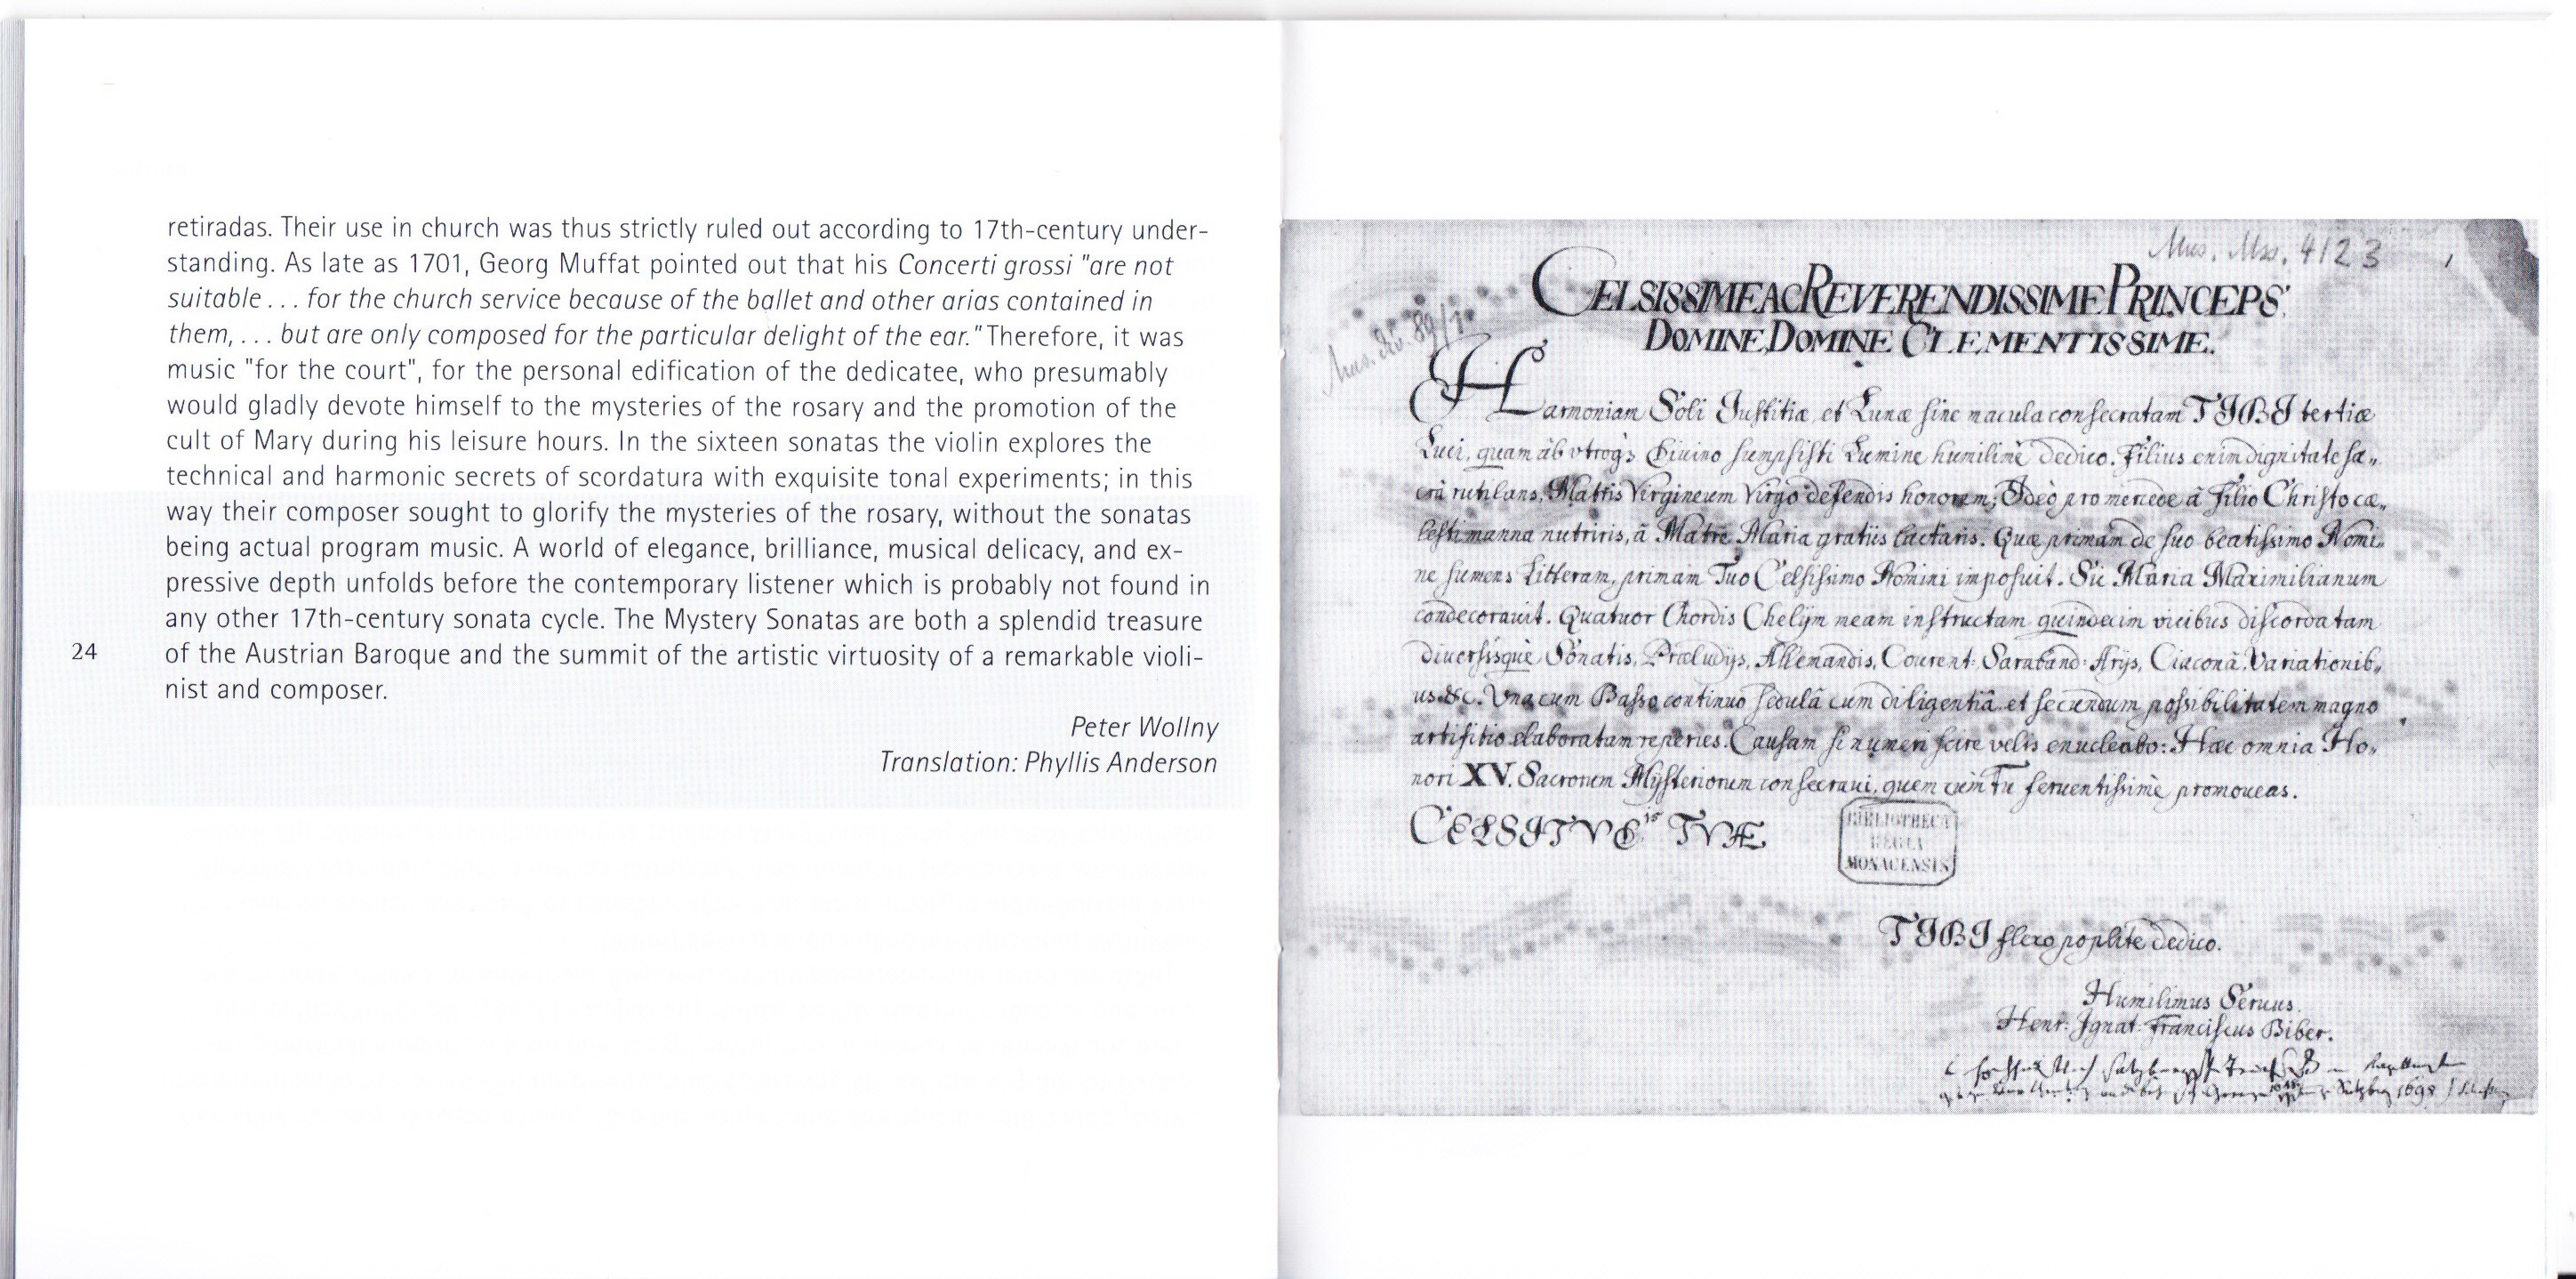 retiradas. Their use in church was thus strictly ruled out according to 17th-century under-
standing. As late as 1701, Georg Muffat pointed out that his Concerti grossi "are not
suitable... for the church service because of the ballet and other arias contained in
them,... but are only composed for the particular delight of the ear." Therefore, it was
music "for the court", for the personal edification of the dedicatee, who presumably
would gladly devote himself to the mysteries of the rosary and the promotion of the
cult of Mary during his leisure hours. In the sixteen sonatas the violin explores the
technical and harmonic secrets of scordatura with exquisite tonal experiments; in this
way their composer sought to glorify the mysteries of the rosary, without the sonatas
being actual program music. A world of elegance, brilliance, musical delicacy, and ex-
pressive depth unfolds before the contemporary listener which is probably not found in
any other 17th-century sonata cycle. The Mystery Sonatas are both a splendid treasure
24
of the Austrian Baroque and the summit of the artistic virtuosity of a remarkable violi-
nist and composer.
Peter Wollny
Translation: Phyllis Anderson
Mus. Mss. 4123
CELSISSIME AC REVERENDISSIME PRINCEPS,
DOMINE, DOMINE CLEMENTISSIME.
Harmoniam Soli Justitiæ, et Lunæ sine macula consecratam TIBI tertiæ
Luci, quam ab vtroq; Diuino sumpsisti Lumine humilimè dedico. Filius enim dignitate sa„
crâ rutilans, Matris Virgineum Virgo defendis honorem; Ideò pro mercede â Filio Christo cæ„
lesti manna nutriris, â Matre Maria gratijs lactaris. Quæ primam de suo beatissimo Nomi„
ne sumens Litteram, primam Tuo Celsissimo Nomini imposuit. Sic Maria Maximilianum
condecorauit. Quatuor Chordis Chelÿm meam instructam quindecim vicibus discordatam
diuersisque Sonatis, Præludijs, Allemandis, Courent: Saraband: Arijs, Ciaconâ, Variationib„
us &c. Vna cum Basso continuo sedulâ cum diligentiâ et secundum possibilitatem magno
artifitio elaboratam reperies. Causam si numeri scire velis enucleabo: Hæc omnia Ho„
nori XV. Sacrorum Mysteriorum consecraui, quem cùm Tu feruentissimè promoueas.
CELSITUDis TVÆ
BIBLIOTHECA
REGIA
MONACENSIS
TIBI flexo poplite dedico.
Humilimus Seruus.
Henr: Ignat: Franciscus Biber.
1698